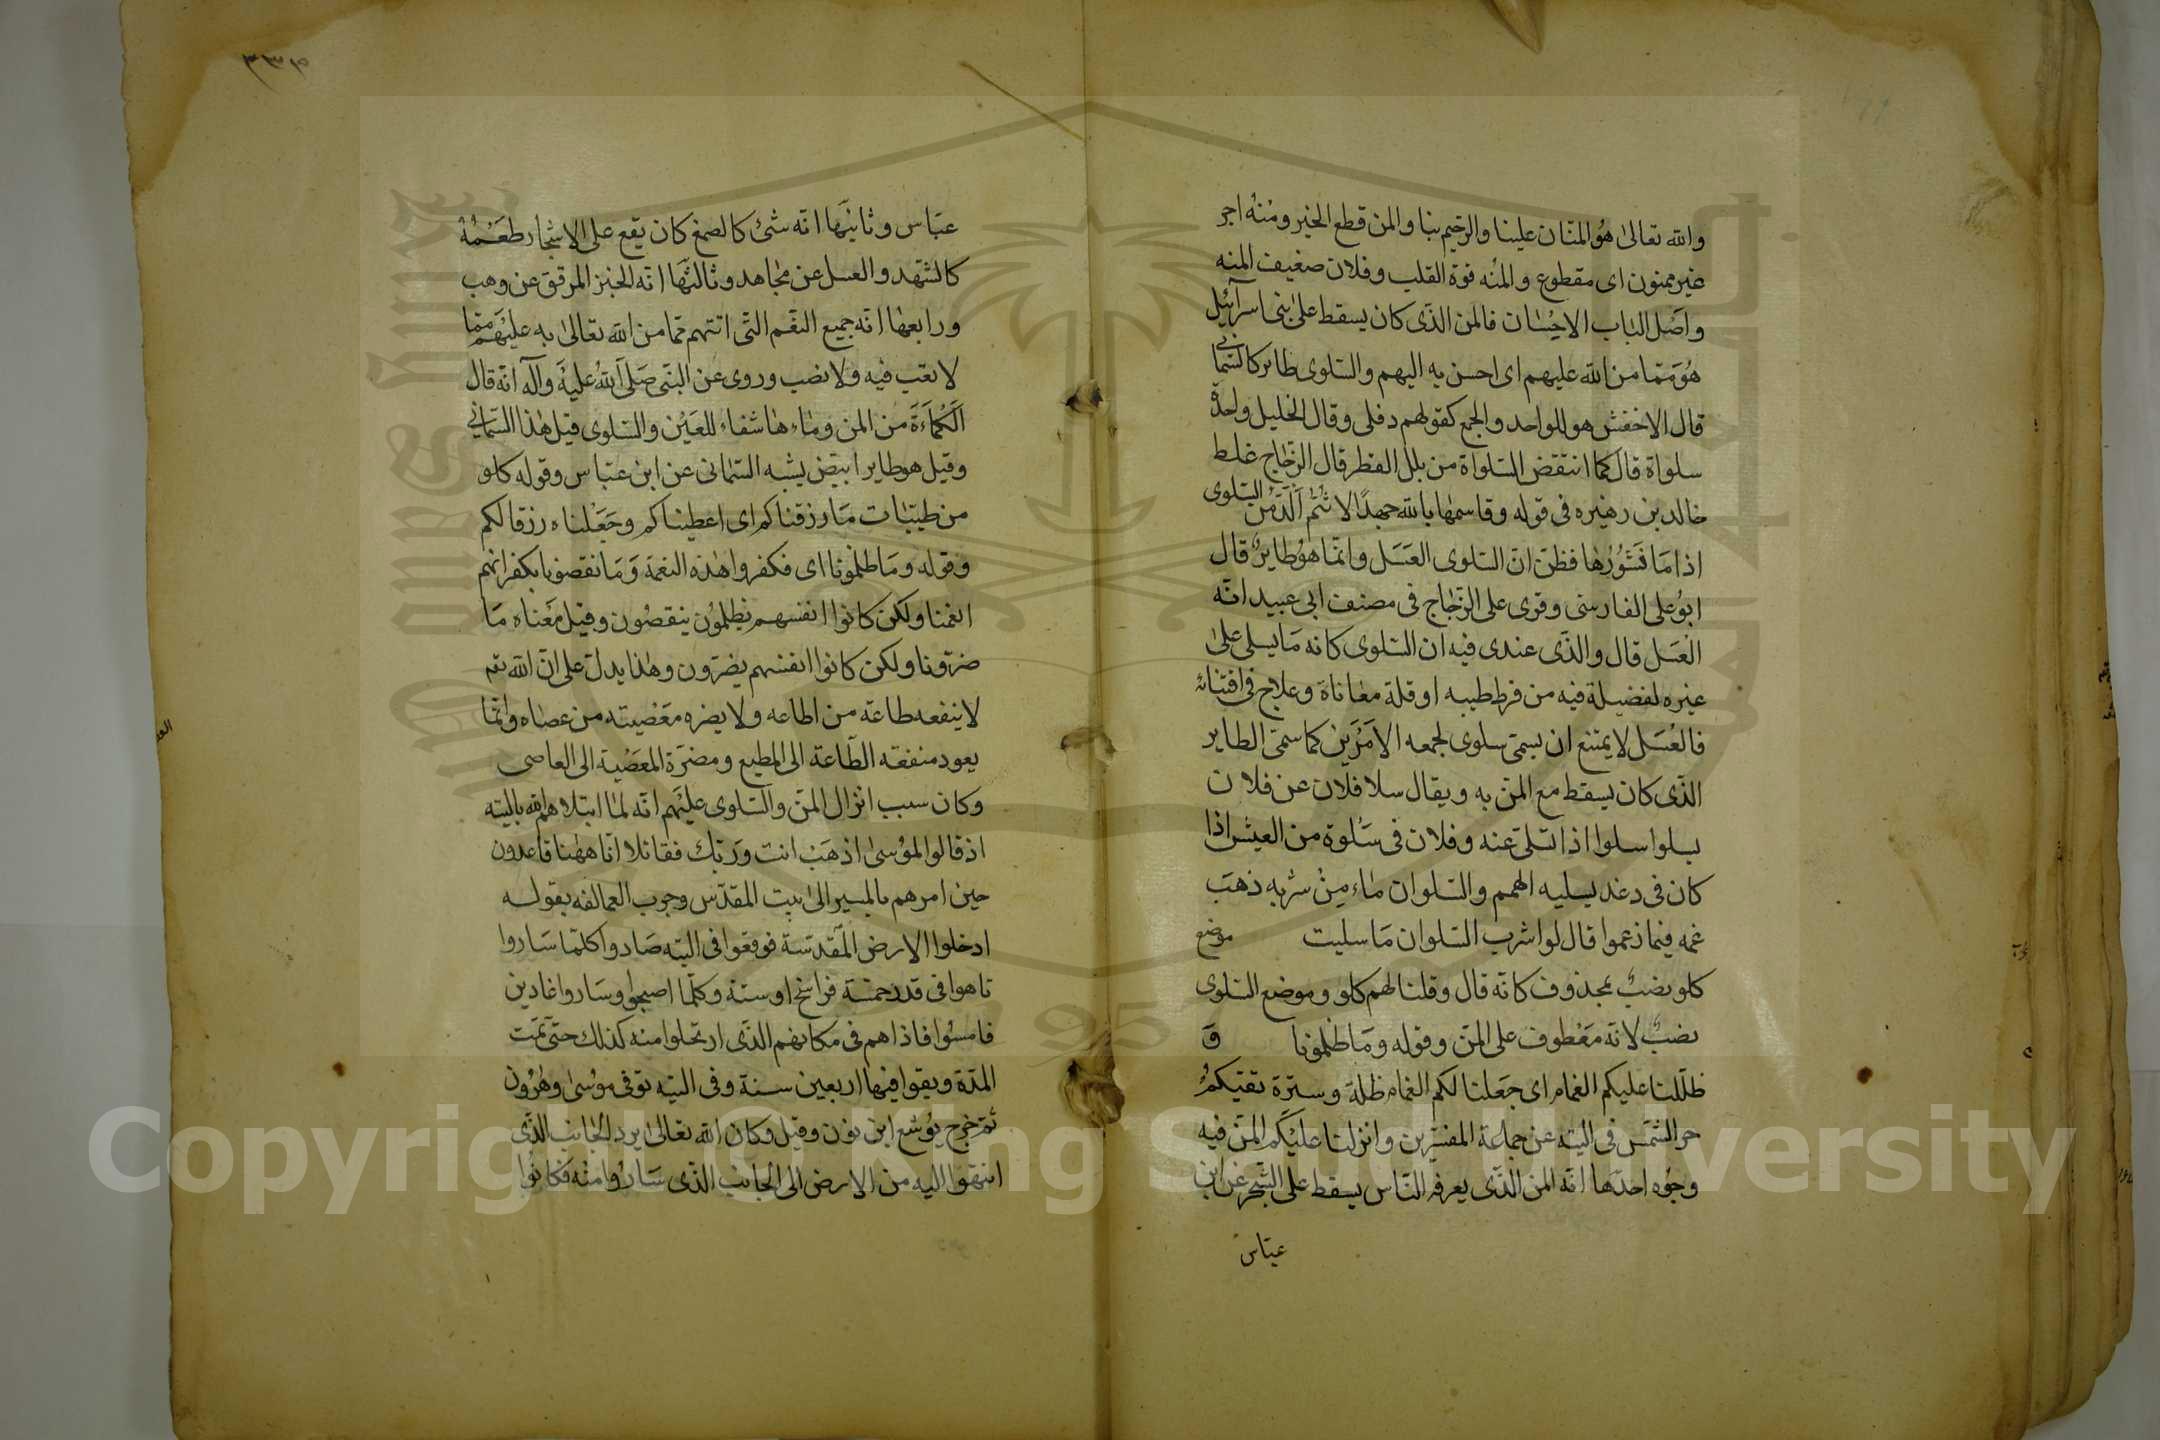 والله تعالى هو المنان علينا والرحيم بنا والمن قطع الخير ومنه اجر
غير ممنون اى مقطوع والمنه قوة القلب وفلان ضعيف المنه
واصل الباب الاحسان فالمن الذى كان يسقط على بنى اسرآئيل
هو مما من الله عليهم اى احسن به اليهم والسلوى طاير كالسمانى
قال الاخفش هو للواحد والجمع كقولهم دفلى وقال الخليل واحدة
سلواة قال كما انتقض السلواة من بلل القطر قال الزجاج غلط
خالد بن زهيره فى قوله وقاسمها بالله جهدا لانتم الذ من السلوى
اذا ما نشورها فظن ان السلوى العسل وانما هو طاير قال
ابو على الفارسى وقرى على الزجاج فى مصنف ابى عبيد انه
العسل قال والذى عندى فيه ان السلوى كانه ما يسلى على
غيره لفضيلة فيه من فرط طيبه او قلة معاناة وعلاج فى اقتنائه
فالعسل لا يمتنع ان يسمى سلوى لجمعه الامرين كما سمى الطاير
الذى كان يسقط مع المن به ويقال سلا فلان عن فلان
يسلوا سلوا اذا تسلى عنه وفلان فى سلوة من العيش اذا
كان فى رغد يسليه الهم والسلوان ماء من شربه ذهب
غمه فيما زعموا قال لو اشرب السلوان ما سليت موضع
كلو نصب بمحذوف كانه قال وقلنا لهم كلو وموضع السلوى
نصب لانه معطوف على المن وقوله وما ظلمونا و
ظللنا عليكم الغمام اى جعلنا لكم الغمام ظلة وسترة تقيكم
حر الشمس فى التيه عن جماعة المفسرين وانزلنا عليكم المن فيه
وجوه احدها انه المن الذى يعرفه الناس يسقط على الشجر عن ابن
عباس
عباس وثانيها انه شئ كالصمغ كان يقع على الاشجار طعمه
كالشهد والعسل عن مجاهد وثالثها انه الخبز المرقق عن وهب
ورابعها انه جميع النعم التى اتتهم مما من الله تعالى به عليهم مما
لا تعب فيه ولا نصب وروى عن النبى صلى الله عليه وآله انه قال
الكماءة من المن وماءها شفاء للعين والسلوى قيل هذا السمانى
وقيل هو طاير ابيض يشبه السمانى عن ابن عباس وقوله كلو
من طيبات ما رزقناكم اى اعطيناكم وجعلناه رزقا لكم
وقوله وما ظلمونا اى فكفروا هذه النعمة وما نقصونا بكفرانهم
انعمنا ولكن كانوا انفسهم يظلمون ينقصون وقيل معناه ما
ضرونا ولكن كانوا انفسهم يضرون وهذا يدل على ان الله تعم
لا ينفعه طاعة من اطاعه ولا يضره معصيته من عصاه وانما
يعود منفعة الطاعة الى المطيع ومضرة المعصية الى العاصى
وكان سبب انزال المن والسلوى عليهم انه لما ابتلاهم الله بالتيه
اذ قالوا لموسى اذهب انت وربك فقاتلا انا ههنا قاعدون
حين امرهم بالمسير الى بيت المقدس وحرب العمالقه بقوله
ادخلوا الارض المقدسة فوقعوا فى التيه صاروا كلما ساروا
تاهوا فى قدر خمسة فراسخ او ستة وكلما اصبحوا وساروا غادين
فامسوا فاذا هم فى مكانهم الذى ارتحلوا منه كذلك حتى تمت
المدة وبقوا فيها اربعين سنة وفى التيه توفى موسى وهرون
ثم خرج يوشع ابن نون وقيل وكان الله تعالى يرد الجانب الذى
انتهوا اليه من الارض الى الجانب الذى ساروا منه فكانوا
Copyright © King Saud University